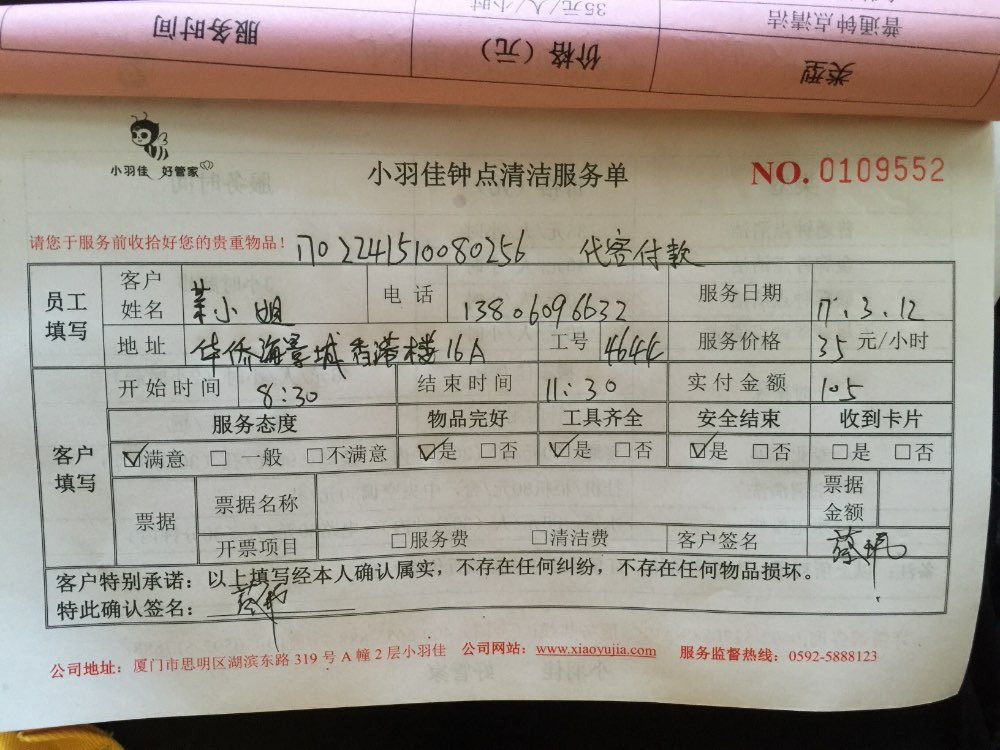 普通钟点清洁 35元/人/小时
类型 价格（元） 服务时间
小羽佳 好管家
小羽佳钟点清洁服务单
NO. 0109552
请您于服务前收拾好您的贵重物品！
1702241510080256 代客付款
员工填写 客户姓名 小姐 电话 13806096632 服务日期 17.3.12
地址 华侨海景城香港楼16A 工号 4644 服务价格 35 元/小时
客户填写 开始时间 8:30 结束时间 11:30 实付金额 105
服务态度 物品完好 工具齐全 安全结束 收到卡片
☑满意 □ 一般 □不满意 ☑是 □否 ☑是 □否 ☑是 □否 □是 □否
票据 票据名称 票据金额
开票项目 □服务费 □清洁费 客户签名
客户特别承诺：以上填写经本人确认属实，不存在任何纠纷，不存在任何物品损坏。
特此确认签名：
公司地址：厦门市思明区湖滨东路 319 号 A 幢 2 层小羽佳 公司网站：www.xiaoyujia.com 服务监督热线：0592-5888123